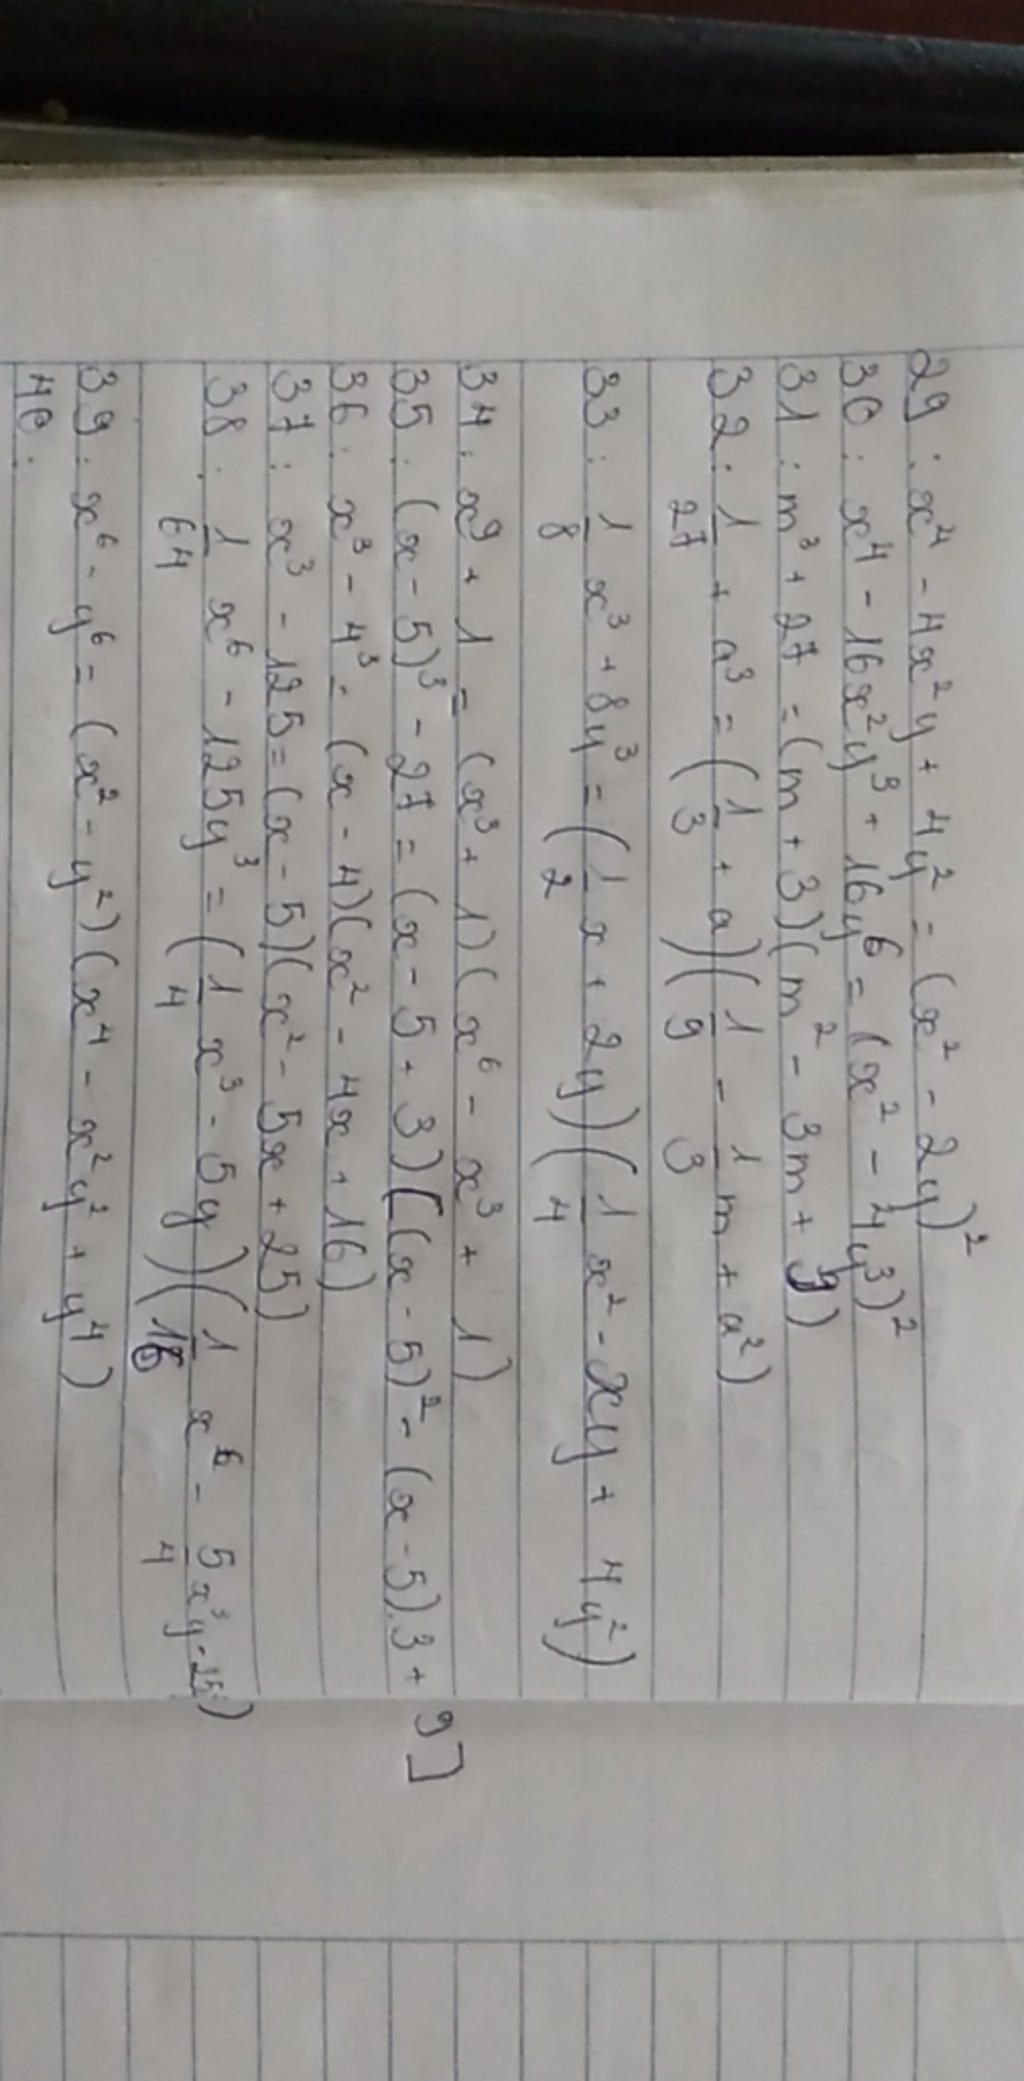 29: x⁴ - 4x²y + 4y² = (x² - 2y)²
30: x⁴ - 16x²y³ + 16y⁶ = (x² - 4y³)²
31: m³ + 27 = (m + 3)(m² - 3m + 9)
32: 1/27 + a³ = (1/3 + a)(1/9 - 1/3 m + a²)
33: 1/8 x³ + 8y³ = (1/2 x + 2y)(1/4 x² - xy + 4y²)
34: x⁹ + 1 = (x³ + 1)(x⁶ - x³ + 1)
35: (x - 5)³ - 27 = (x - 5 + 3)[(x - 5)² - (x - 5).3 + 9]
36: x³ - 4³ = (x - 4)(x² - 4x + 16)
37: x³ - 125 = (x - 5)(x² - 5x + 25)
38: 1/64 x⁶ - 125y³ = (1/4 x³ - 5y)(1/16 x⁶ - 5/4 x³y - )
39: x⁶ - y⁶ = (x² - y²)(x⁴ - x²y² + y⁴)
40: